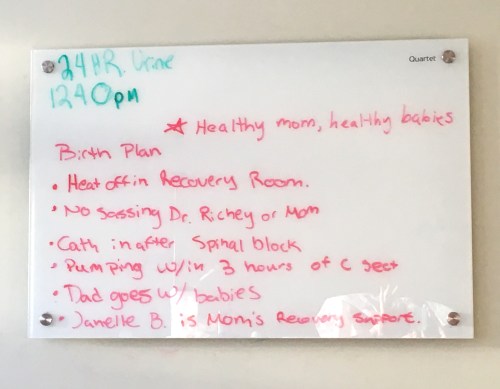 24 HR. Urine
Quartet
1240pm
★ Healthy mom, healthy babies
Birth Plan
• Heat off in Recovery Room.
• No Sassing Dr. Richey or Mom
• Cath in after Spinal block
• Pumping w/in 3 hours of C sect
• Dad goes w/ babies
• Janelle B. is Mom's Recovery Support.